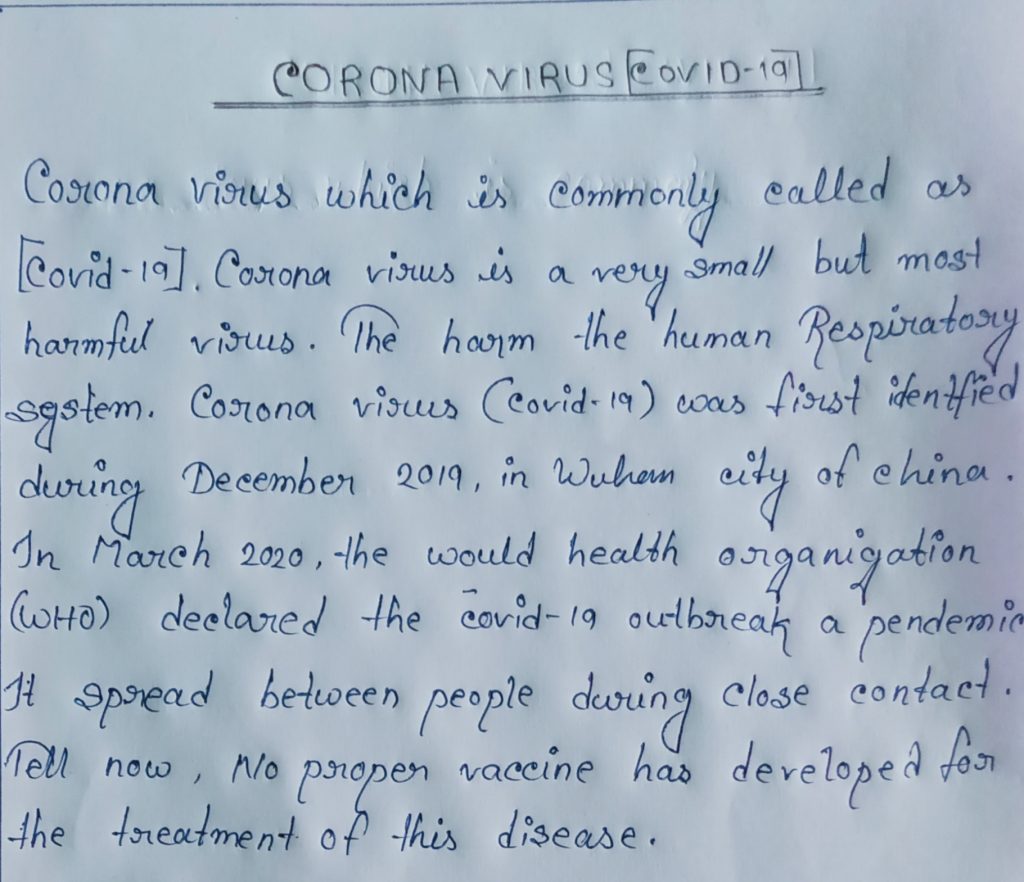 CORONA VIRUS [COVID-19]
Corona virus which is commonly called as
[Covid-19]. Corona virus is a very small but most
harmful virus. The harm the human Respiratory
system. Corona virus (Covid-19) was first identfied
during December 2019, in Wuhan city of china.
In March 2020, the would health organization
(WHO) declared the covid-19 outbreak a pendemic
It spread between people during close contact.
Tell now, No proper vaccine has developed for
the treatment of this disease.